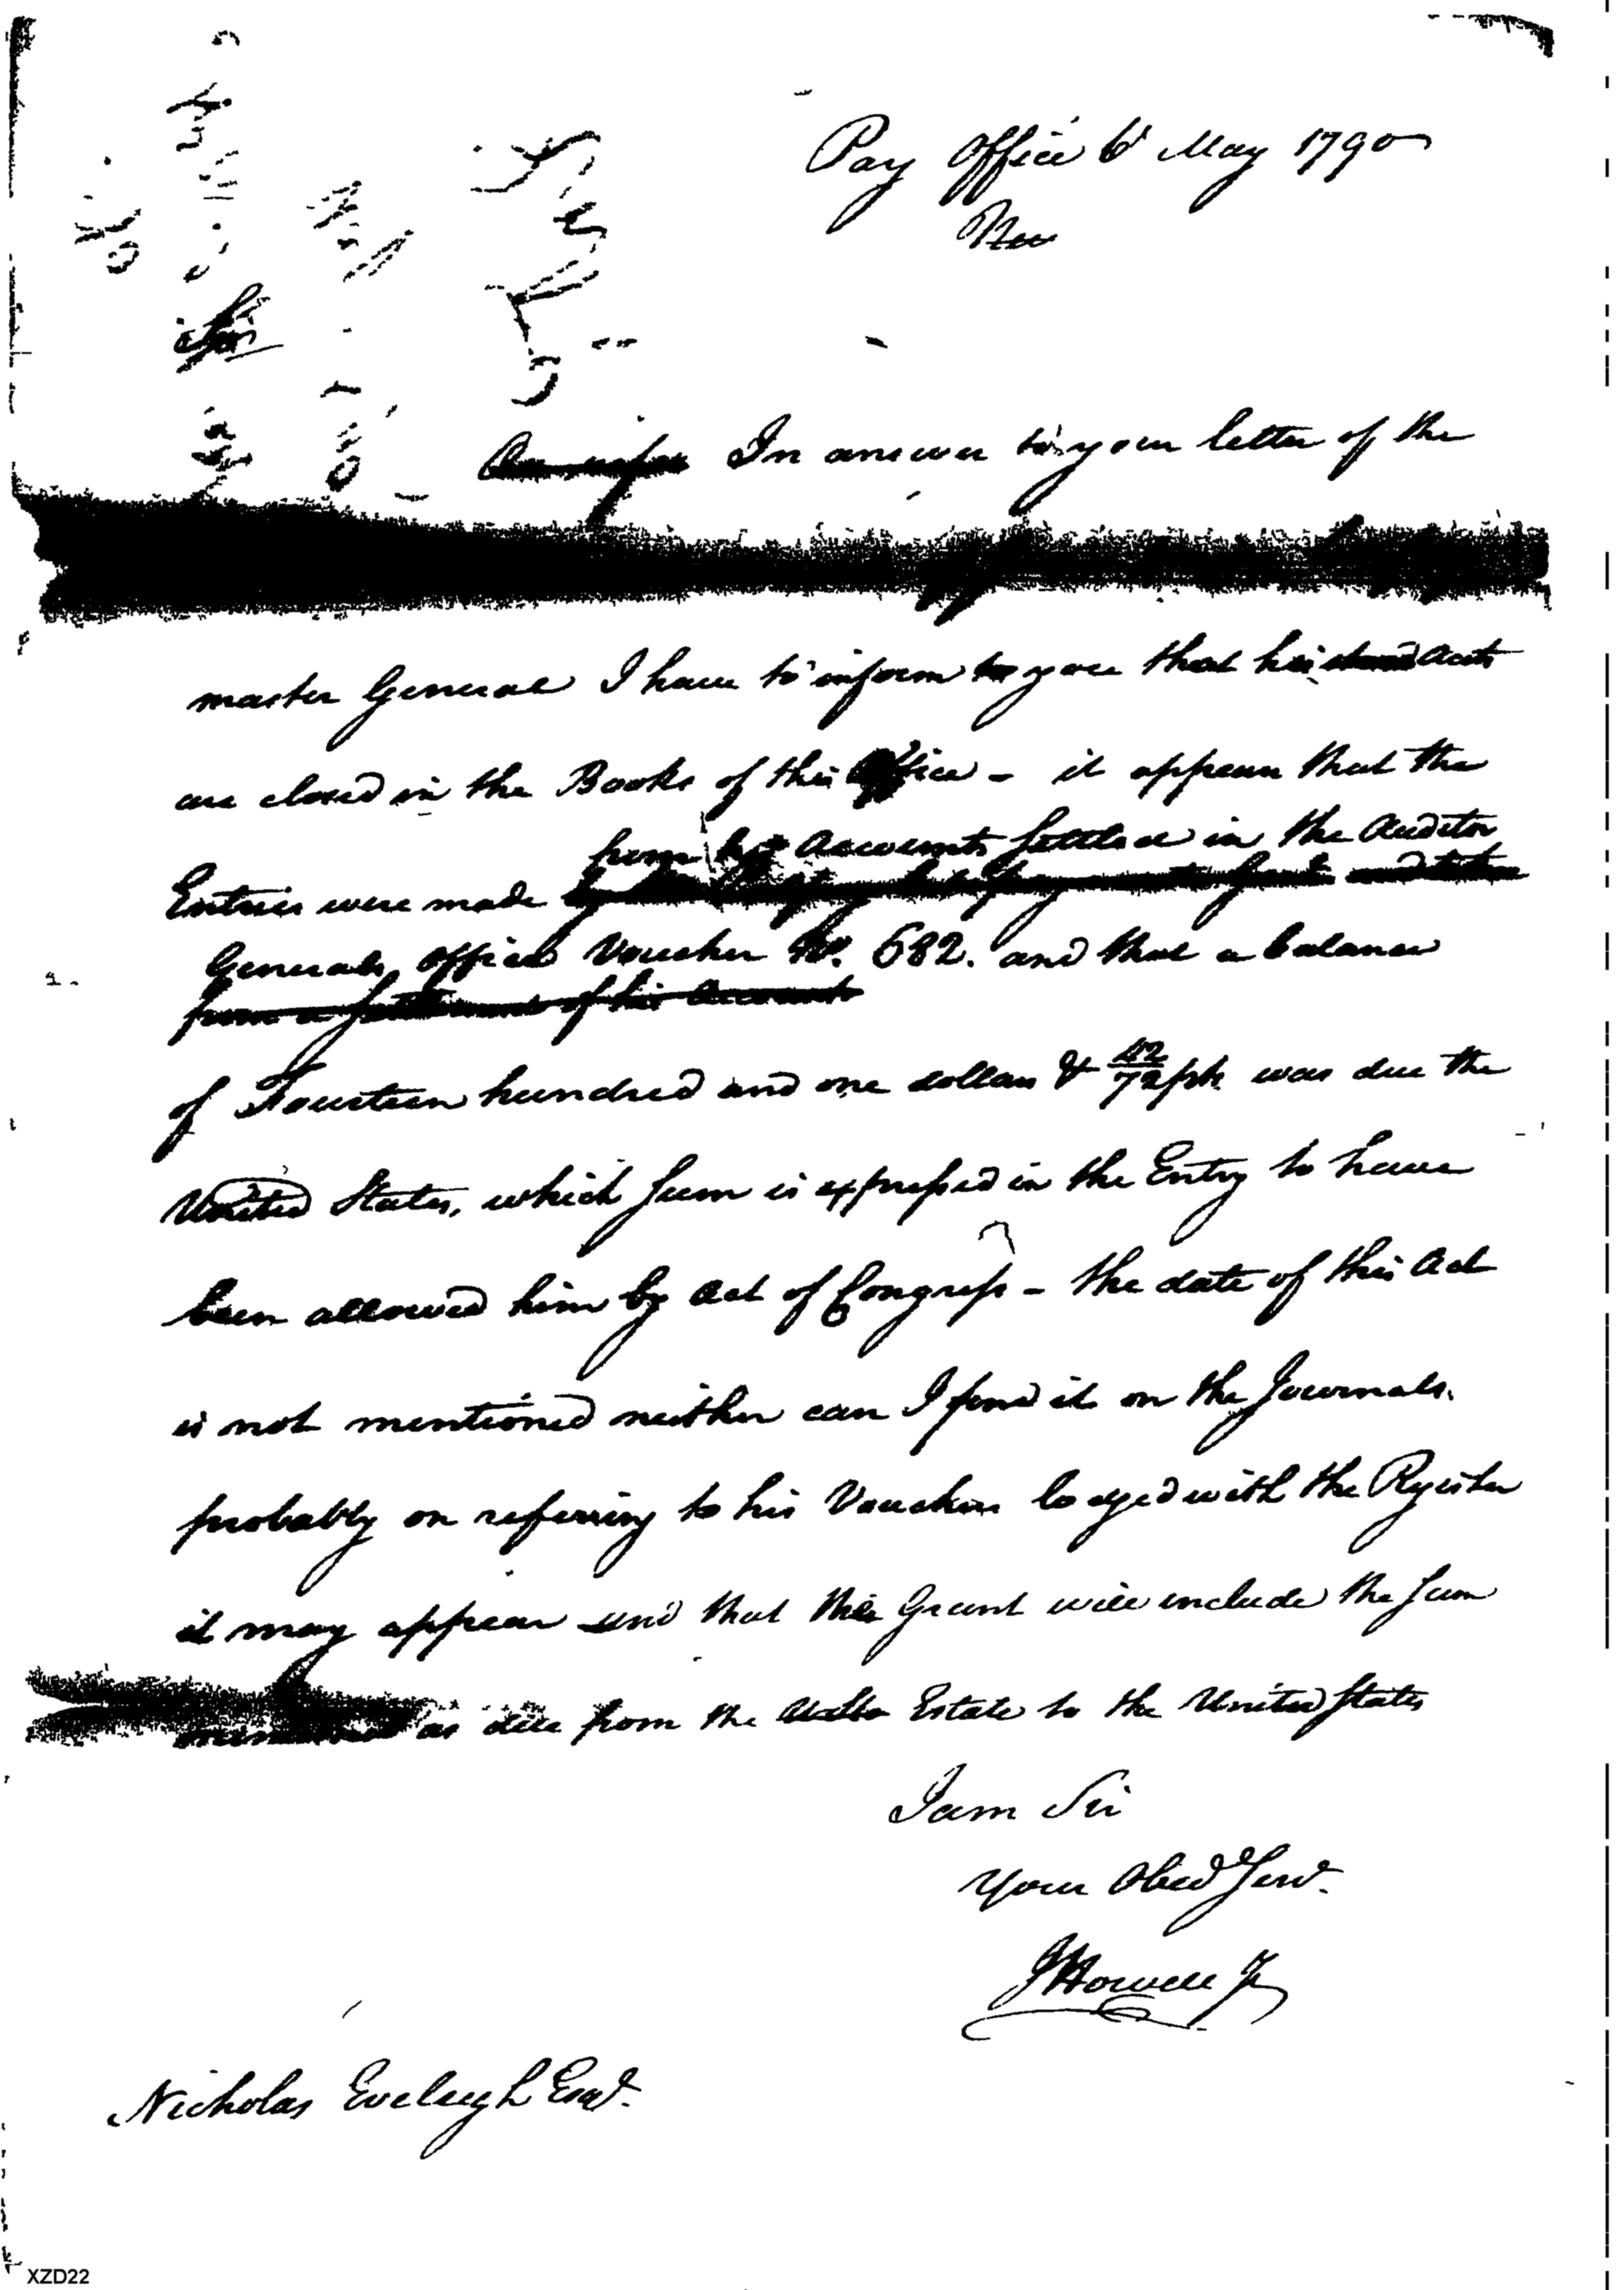 Pay Office 6 May 1790
Sir
In answer to your letter of the
master General I have to inform you that his Accts
are closed in the Books of this Office - it appears that the
from his Accounts Settled in the Auditor
Entries were made
Generals Office Voucher No. 682. and that a balance
from a settlement of his Accounts
of Fourteen hundred and one dollars & 42/72 pts was due the
United States, which Sum is expressed in the Entry to have
been allowed him by Act of Congress - the date of this Act
is not mentioned neither can I find it on the Journals.
probably on referring to his Vouchers lodged with the Register
it may appear and that the Grant will include the Sum
as due from the Estate to the United States
I am Sir
Your Obed Servt.
J Howell Jr
Nicholas Eveleigh Esqr.
XZD22